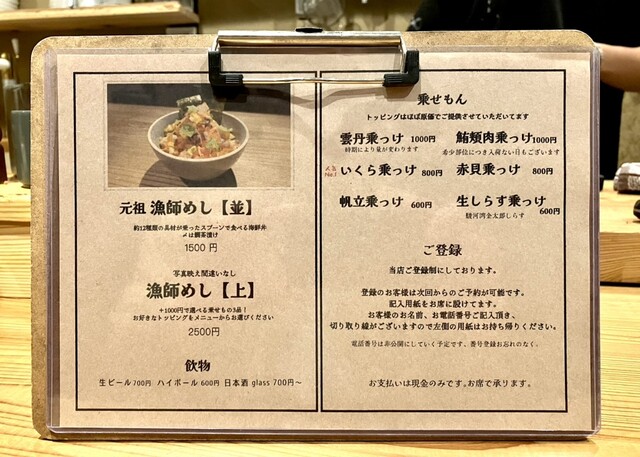 元祖 漁師めし【並】
約12種類の具材が乗ったスプーンで食べる海鮮丼
〆は鯛茶漬け
1500 円
写真映え間違いなし
漁師めし【上】
+1000円で選べる乗せもの3品！
お好きなトッピングをメニューからお選びください
2500円
飲物
生ビール700円 ハイボール 600円 日本酒 glass 700円～
乗せもん
トッピングはほぼ原価でご提供させていただいてます
雲丹乗っけ 1000円
時期により量が変わります
鮪頬肉乗っけ1000円
希少部位につき入荷ない日もございます
人気No.1 いくら乗っけ 800円
赤貝乗っけ 800円
帆立乗っけ 600円
生しらす乗っけ 600円
駿河湾金太郎しらす
ご登録
当店ご登録制にしております。
登録のお客様は次回からのご予約が可能です。
記入用紙をお席に設けてます。
お客様のお名前、お電話番号ご記入頂き、
切り取り線がございますので左側の用紙はお持ち帰りください。
電話番号は非公開にしていく予定です、番号登録お忘れのなく。
お支払いは現金のみです。お席で承ります。